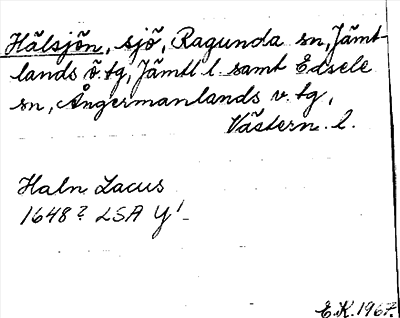 Hälsjön, sjö, Ragunda sn, Jämt-
lands ö. tg, Jämtl l. samt Edsele
sn, Ångermanlands v. tg,
Västern. l.
Haln Lacus
1648? LSA Y¹
E.K. 1967.